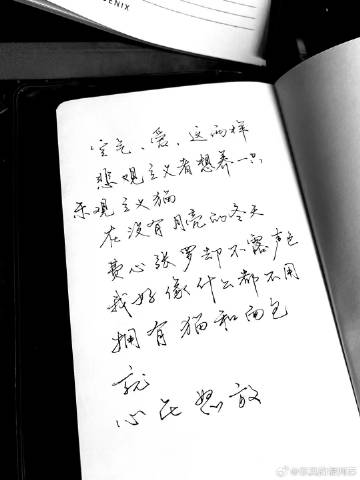 ENIX
空气、爱、这两样
悲观主义者想养一只
乐观主义猫
在没有月亮的冬天
费心张罗却不露声色
我好像什么都不用
拥有猫和面包
就
心花怒放